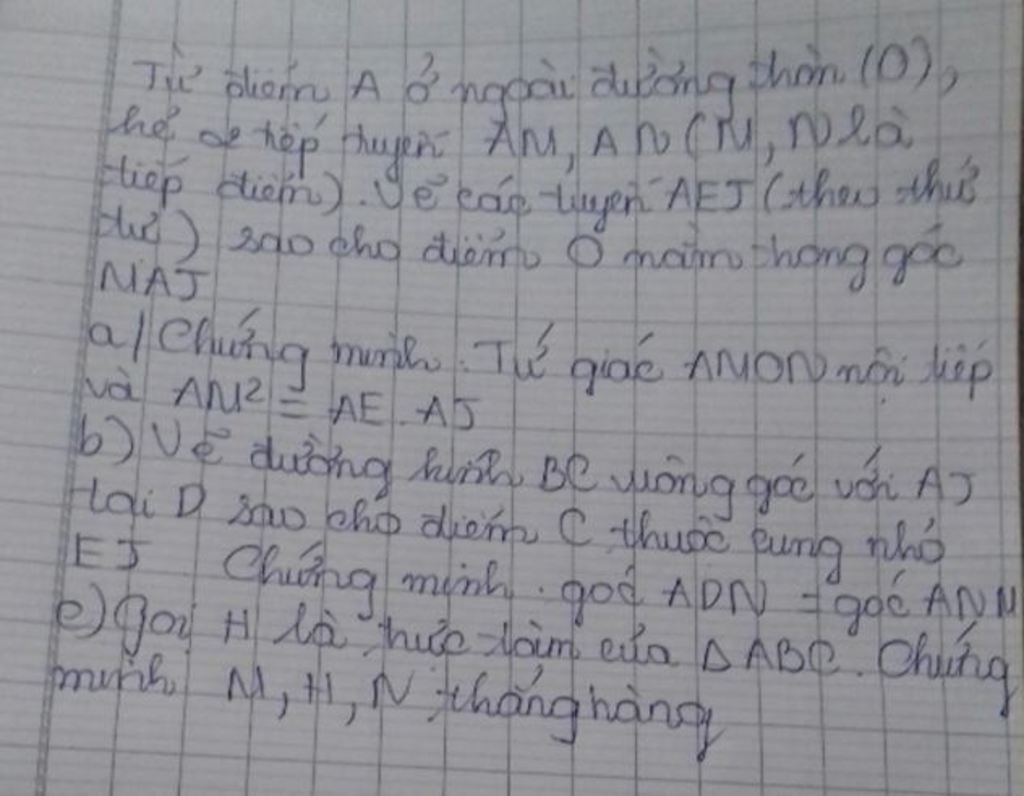 Từ điểm A ở ngoài đường tròn (O),
kẻ 2 tiếp tuyến AM, AN (M, N là
tiếp điểm). Vẽ cát tuyến AEJ (theo thứ
tự) sao cho điểm O nằm trong góc
NAJ
a/ Chứng minh. Tứ giác AMON nội tiếp
và AM² = AE. AJ
b) Vẽ đường kính BC vuông góc với AJ
tại D sao cho điểm C thuộc cung nhỏ
EJ Chứng minh. góc ADN = góc ANM
c) Gọi H là trực tâm của Δ ABC. Chứng
minh M, H, N thẳng hàng